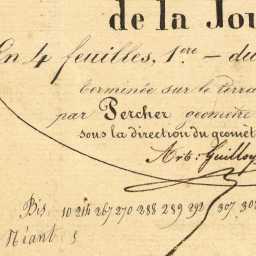 de la Jou
En 4 feuilles, 1.re — du
Terminée sur le terra
par Percher géomètre
sous la direction du géomèt
Art: Guilloy
Bis 10 214 267 270 288 289 292 307 30
Néant 5